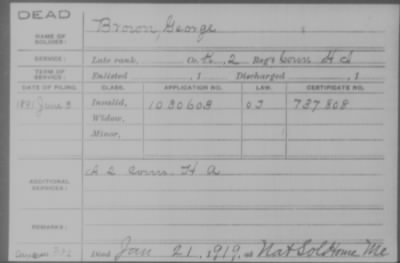 DEAD
NAME OF SOLDIER: Brown, George
SERVICE: Late rank, Co. K, 2 Reg't Conn H A
TERM OF SERVICE: Enlisted , 1 Discharged , 1
DATE OF FILING. CLASS. APPLICATION NO. LAW. CERTIFICATE NO.
1891 June 3 Invalid, 1030608 737808
Widow,
Minor,
ADDITIONAL SERVICES: A 2 Conn. H A
REMARKS:
Died Jan 21, 1919, at Nat Sol Home Me